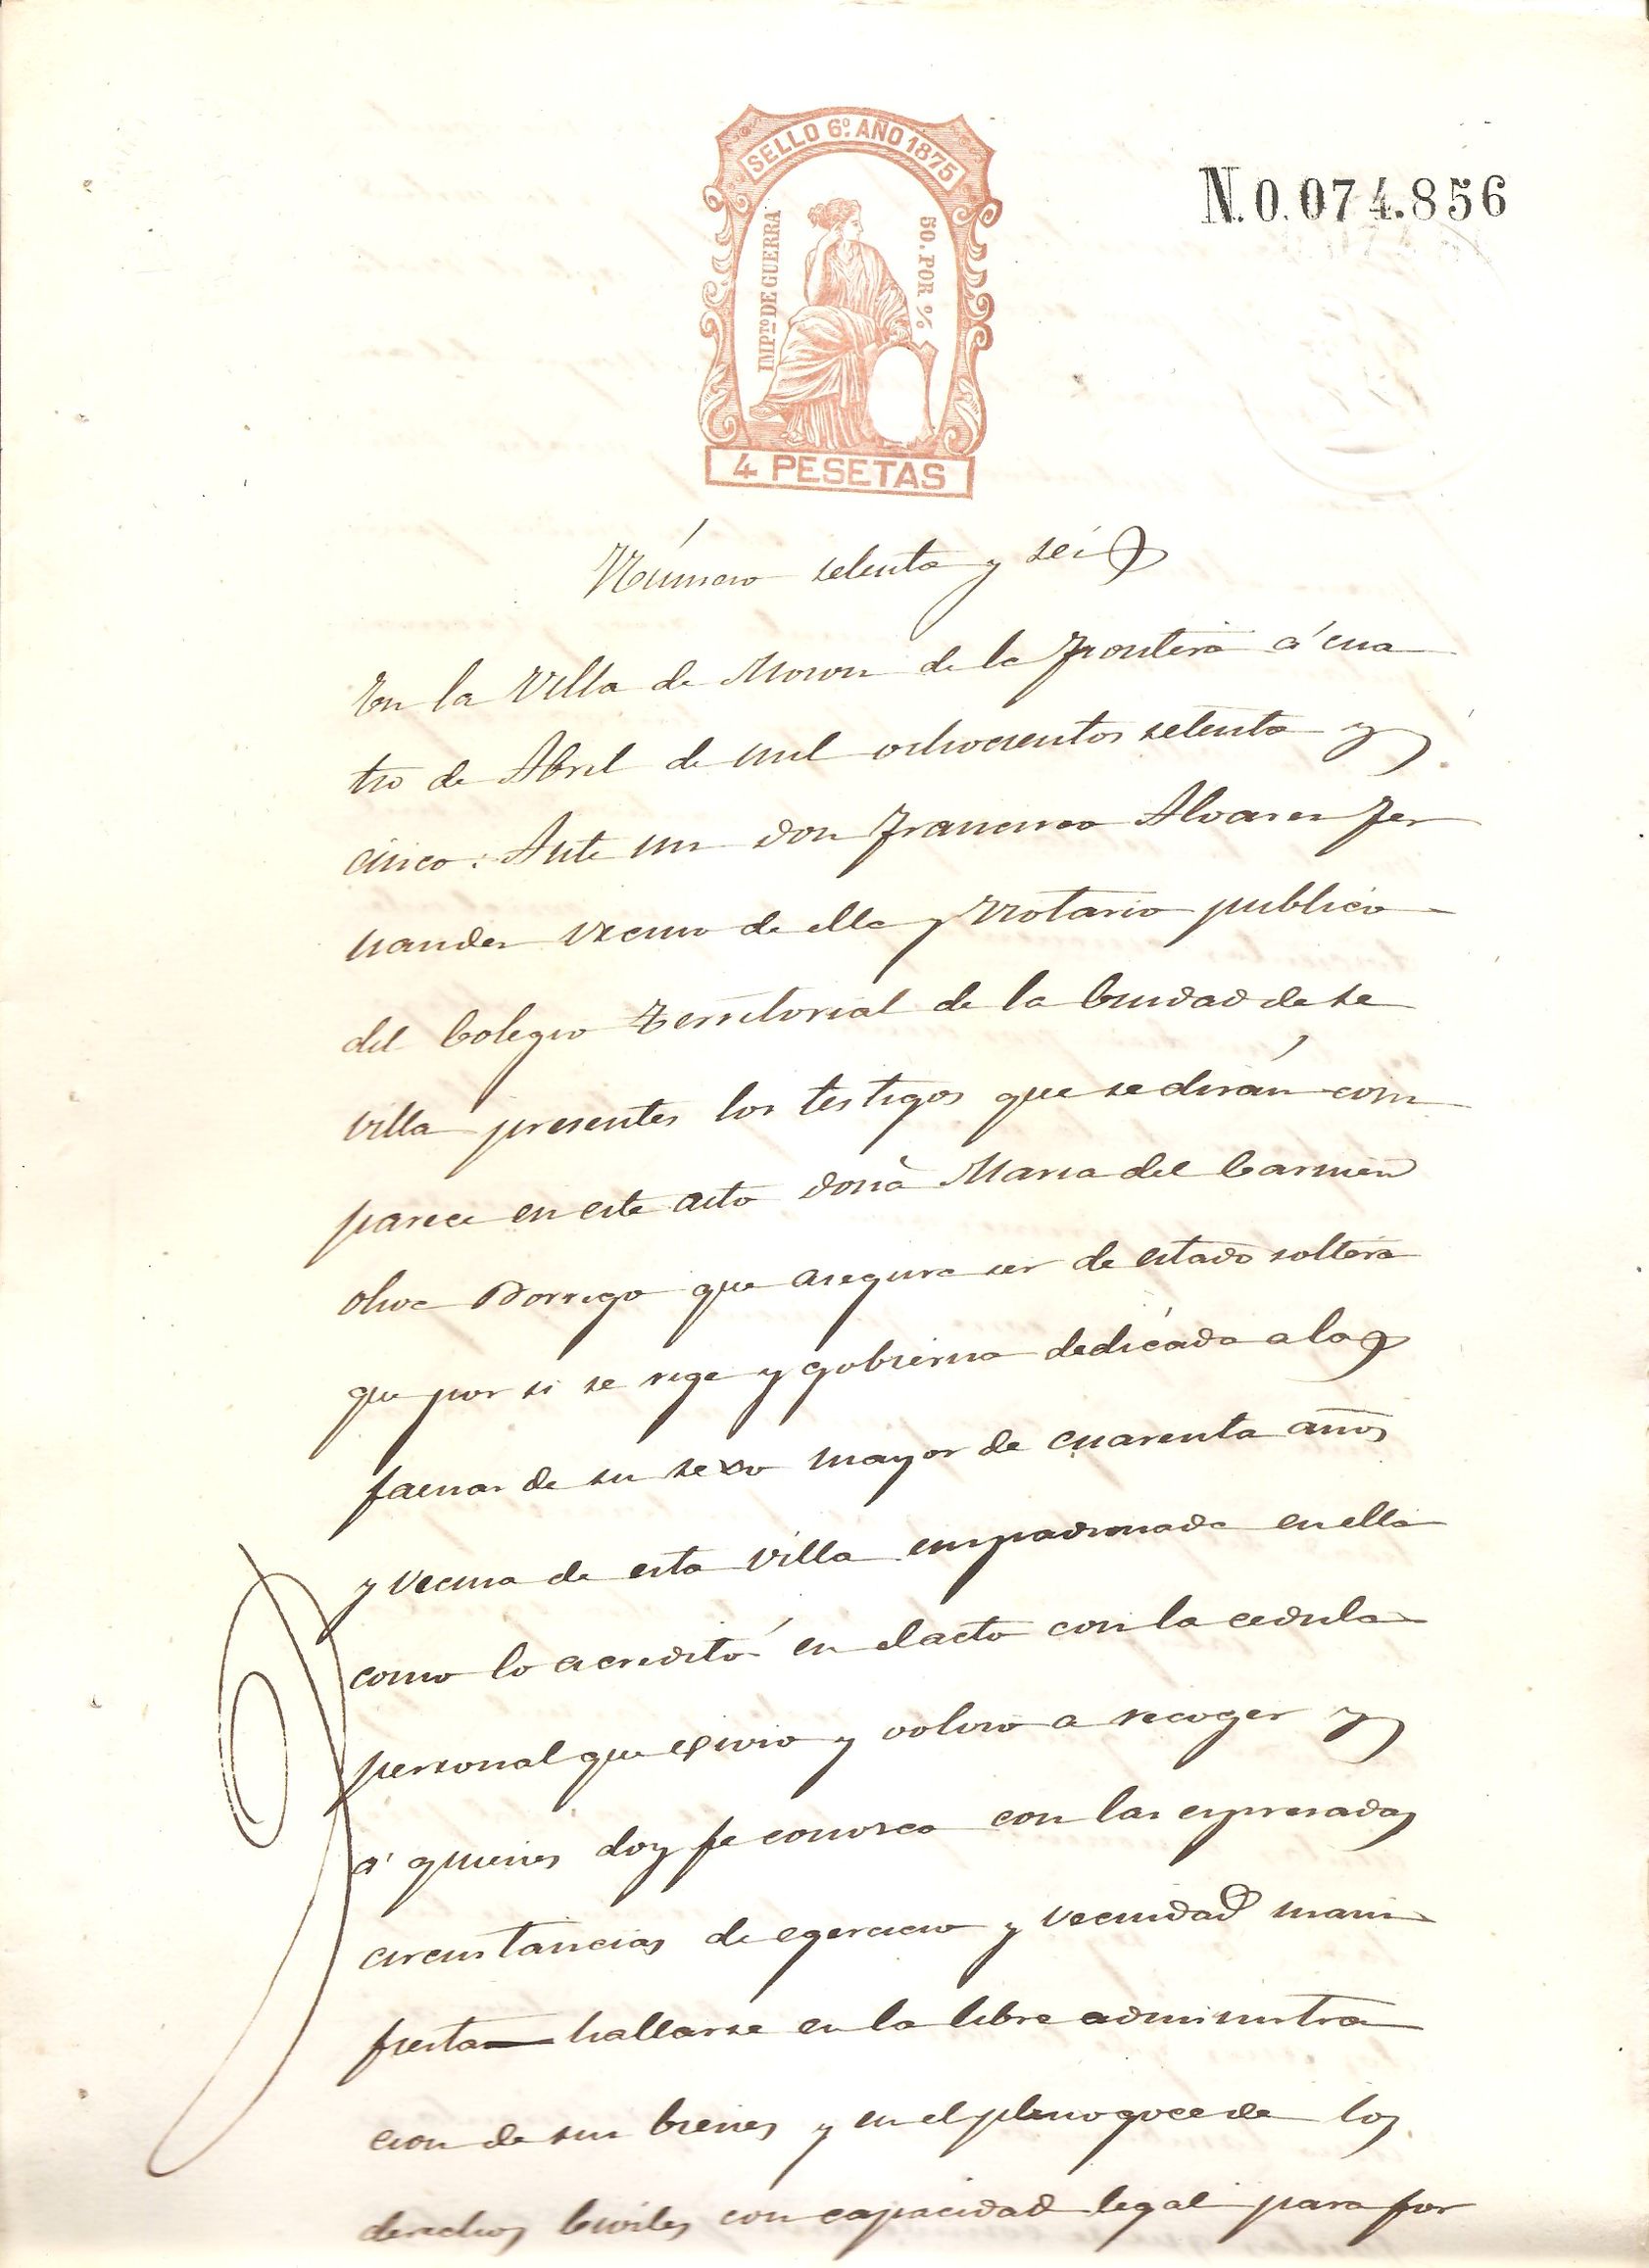 SELLO 6º AÑO 1875
IMPTO DE GUERRA
50. POR %
4 PESETAS
N.0.074.856
Número setenta y seis
En la Villa de Moron de la Frontera á cua
tro de Abril de mil ochocientos setenta y
cinco: Ante mi don Francisco Alvarez Fer
nandez vecino de ella y Notario publico
del Colegio Territorial de la Ciudad de Se
villa presentes los testigos que se dirán com
parece en este acto doña Maria del Carmen
Oliva Borrego que asegura ser de estado soltera
que por si se rige y gobierna dedicada a las
faenas de su sexo mayor de cuarenta años
y vecina de esta Villa empadronada en ella
como lo acreditó en el acto con la cedula
personal que exivio y volvio a recoger y
á quienes doy fe conosco con las espresadas
circunstancias de egercicio y vecindad mani
fiesta hallarse en la libre administra
cion de sus bienes y en el pleno goce de los
derechos Civiles con capacidad legal para for